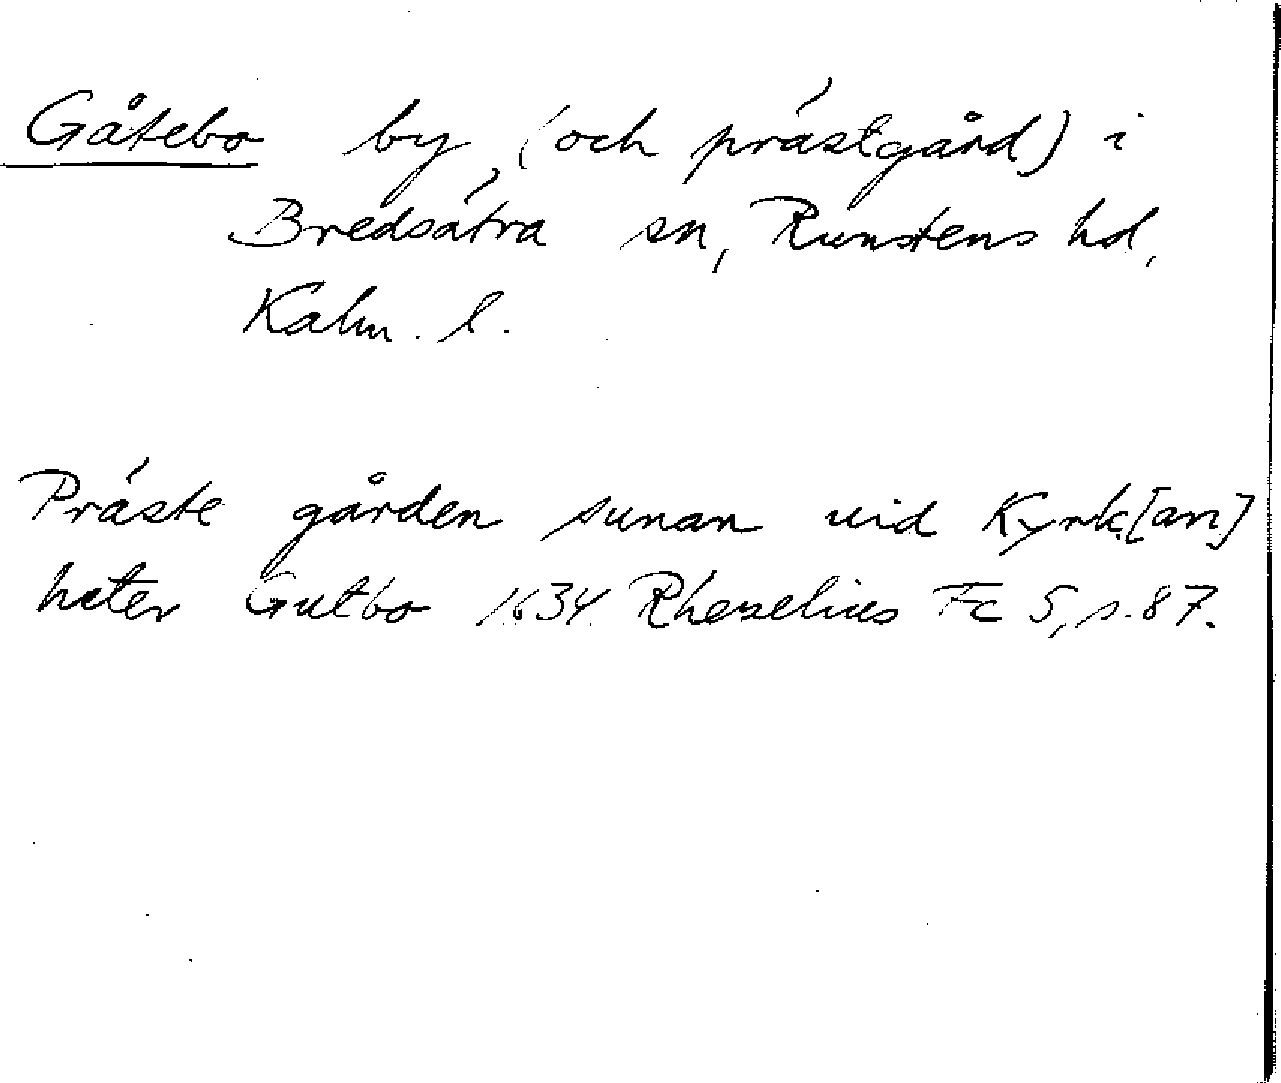 Gåtebo by (och prästgård) i
Bredsätra sn, Runstens hd,
Kalm. l.
Präste gården sunan uid Kyrk[an]
heter Gutbo 1634 Rhezelius Fc 5, s. 87.